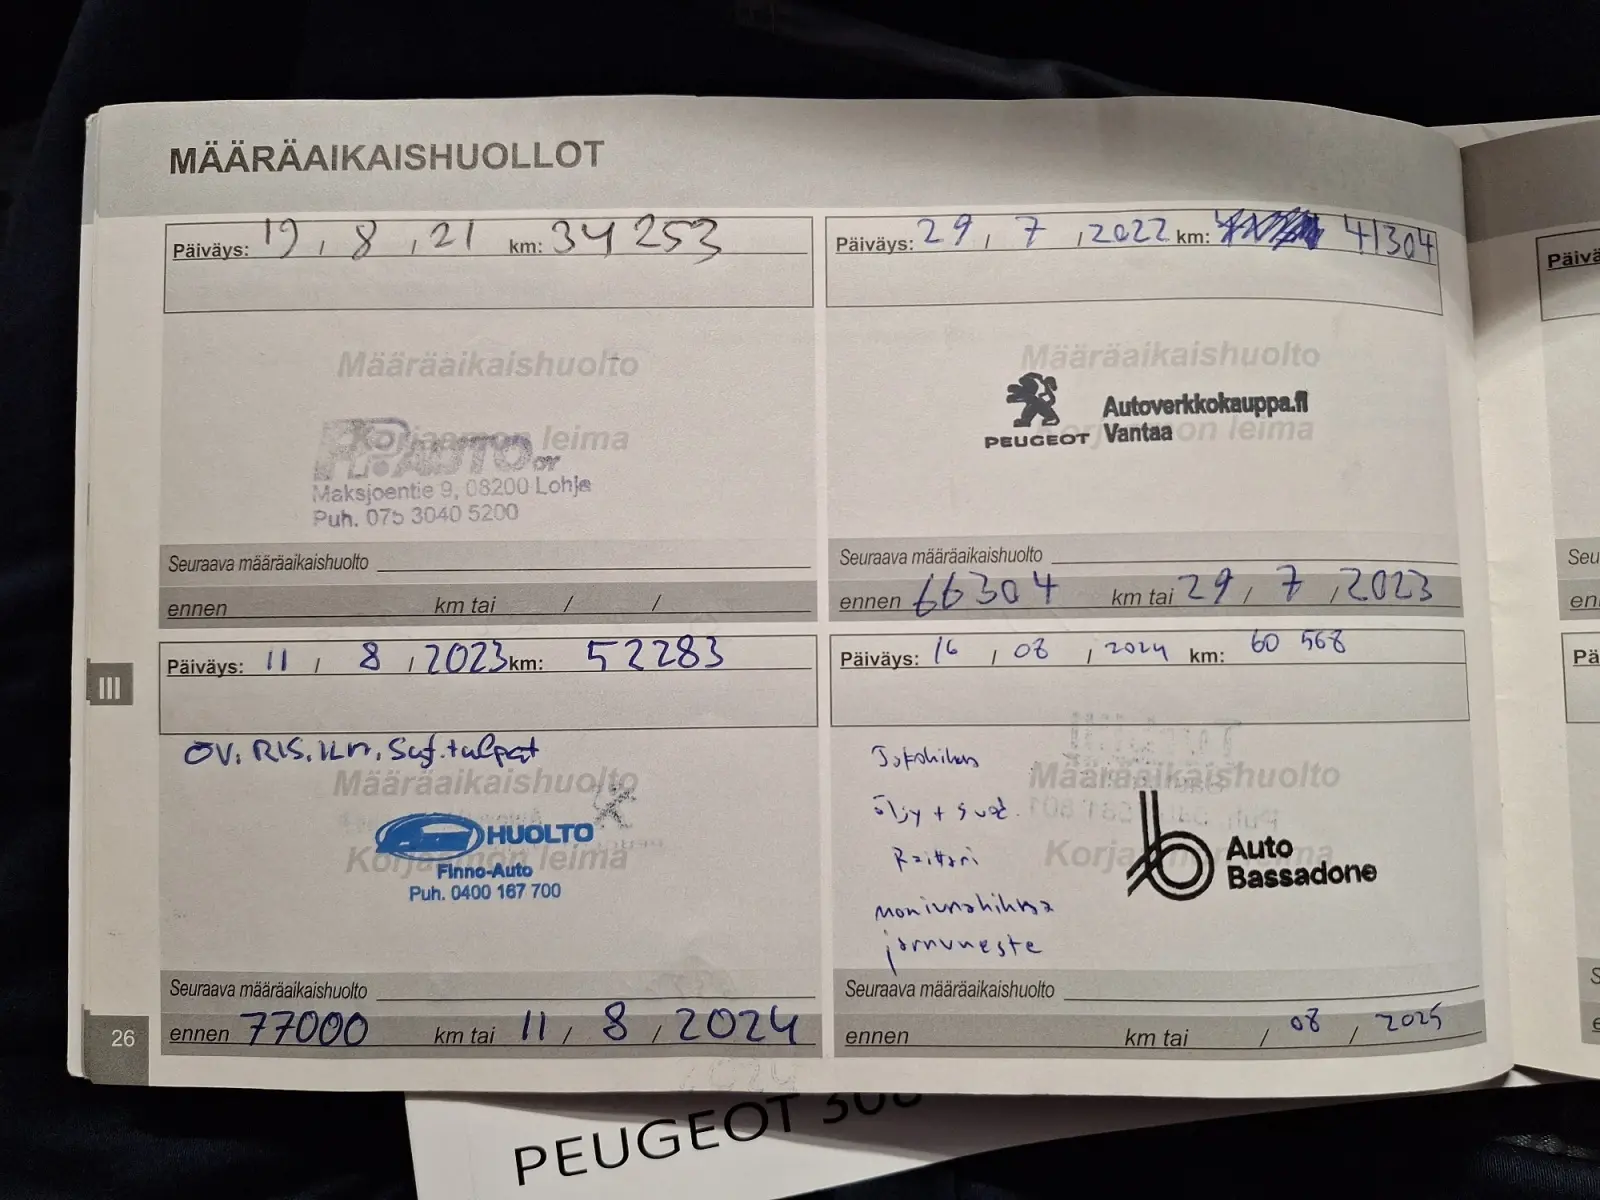 MÄÄRÄAIKAISHUOLLOT
Päiväys: 19 , 8 , 21 km: 34 253
Määräaikaishuolto
Korjaamon leima
AUTO OY
Maksjoentie 9, 08200 Lohja
Puh. 075 3040 5200
Seuraava määräaikaishuolto
ennen km tai / /
Päiväys: 29 , 7 , 2022 km: 41304
Määräaikaishuolto
Autoverkkokauppa.fi
PEUGEOT Vantaa
Korjaamon leima
Seuraava määräaikaishuolto
ennen 66304 km tai 29 / 7 , 2023
Päiväys: 11 , 8 , 2023 km: 52283
ÖV. RIS. ILM. Suf. tulpat
Määräaikaishuolto
HUOLTO
Korjaamon leima
Finno-Auto
Puh. 0400 167 700
Seuraava määräaikaishuolto
ennen 77000 km tai 11 / 8 / 2024
Päiväys: 16 , 08 , 2024 km: 60 568
Jakohihna
Määräaikaishuolto
öljy + suod.
Raitisri
Korjaamon leima
Auto
Bassadone
moniurahihna
jarruneste
Seuraava määräaikaishuolto
ennen km tai / 08 / 2025
III
26
PEUGEOT 308
Päivä
Seu
en
Pä
S
e